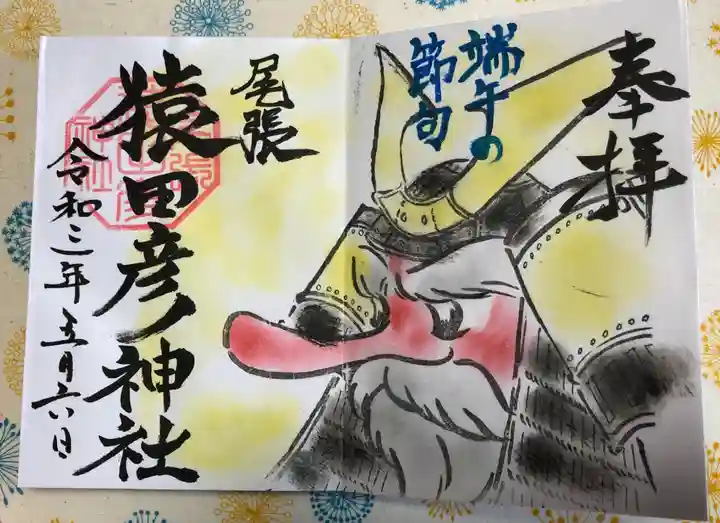 奉拝
端午の
節句
尾張
猿田彦神社
令和三年五月六日